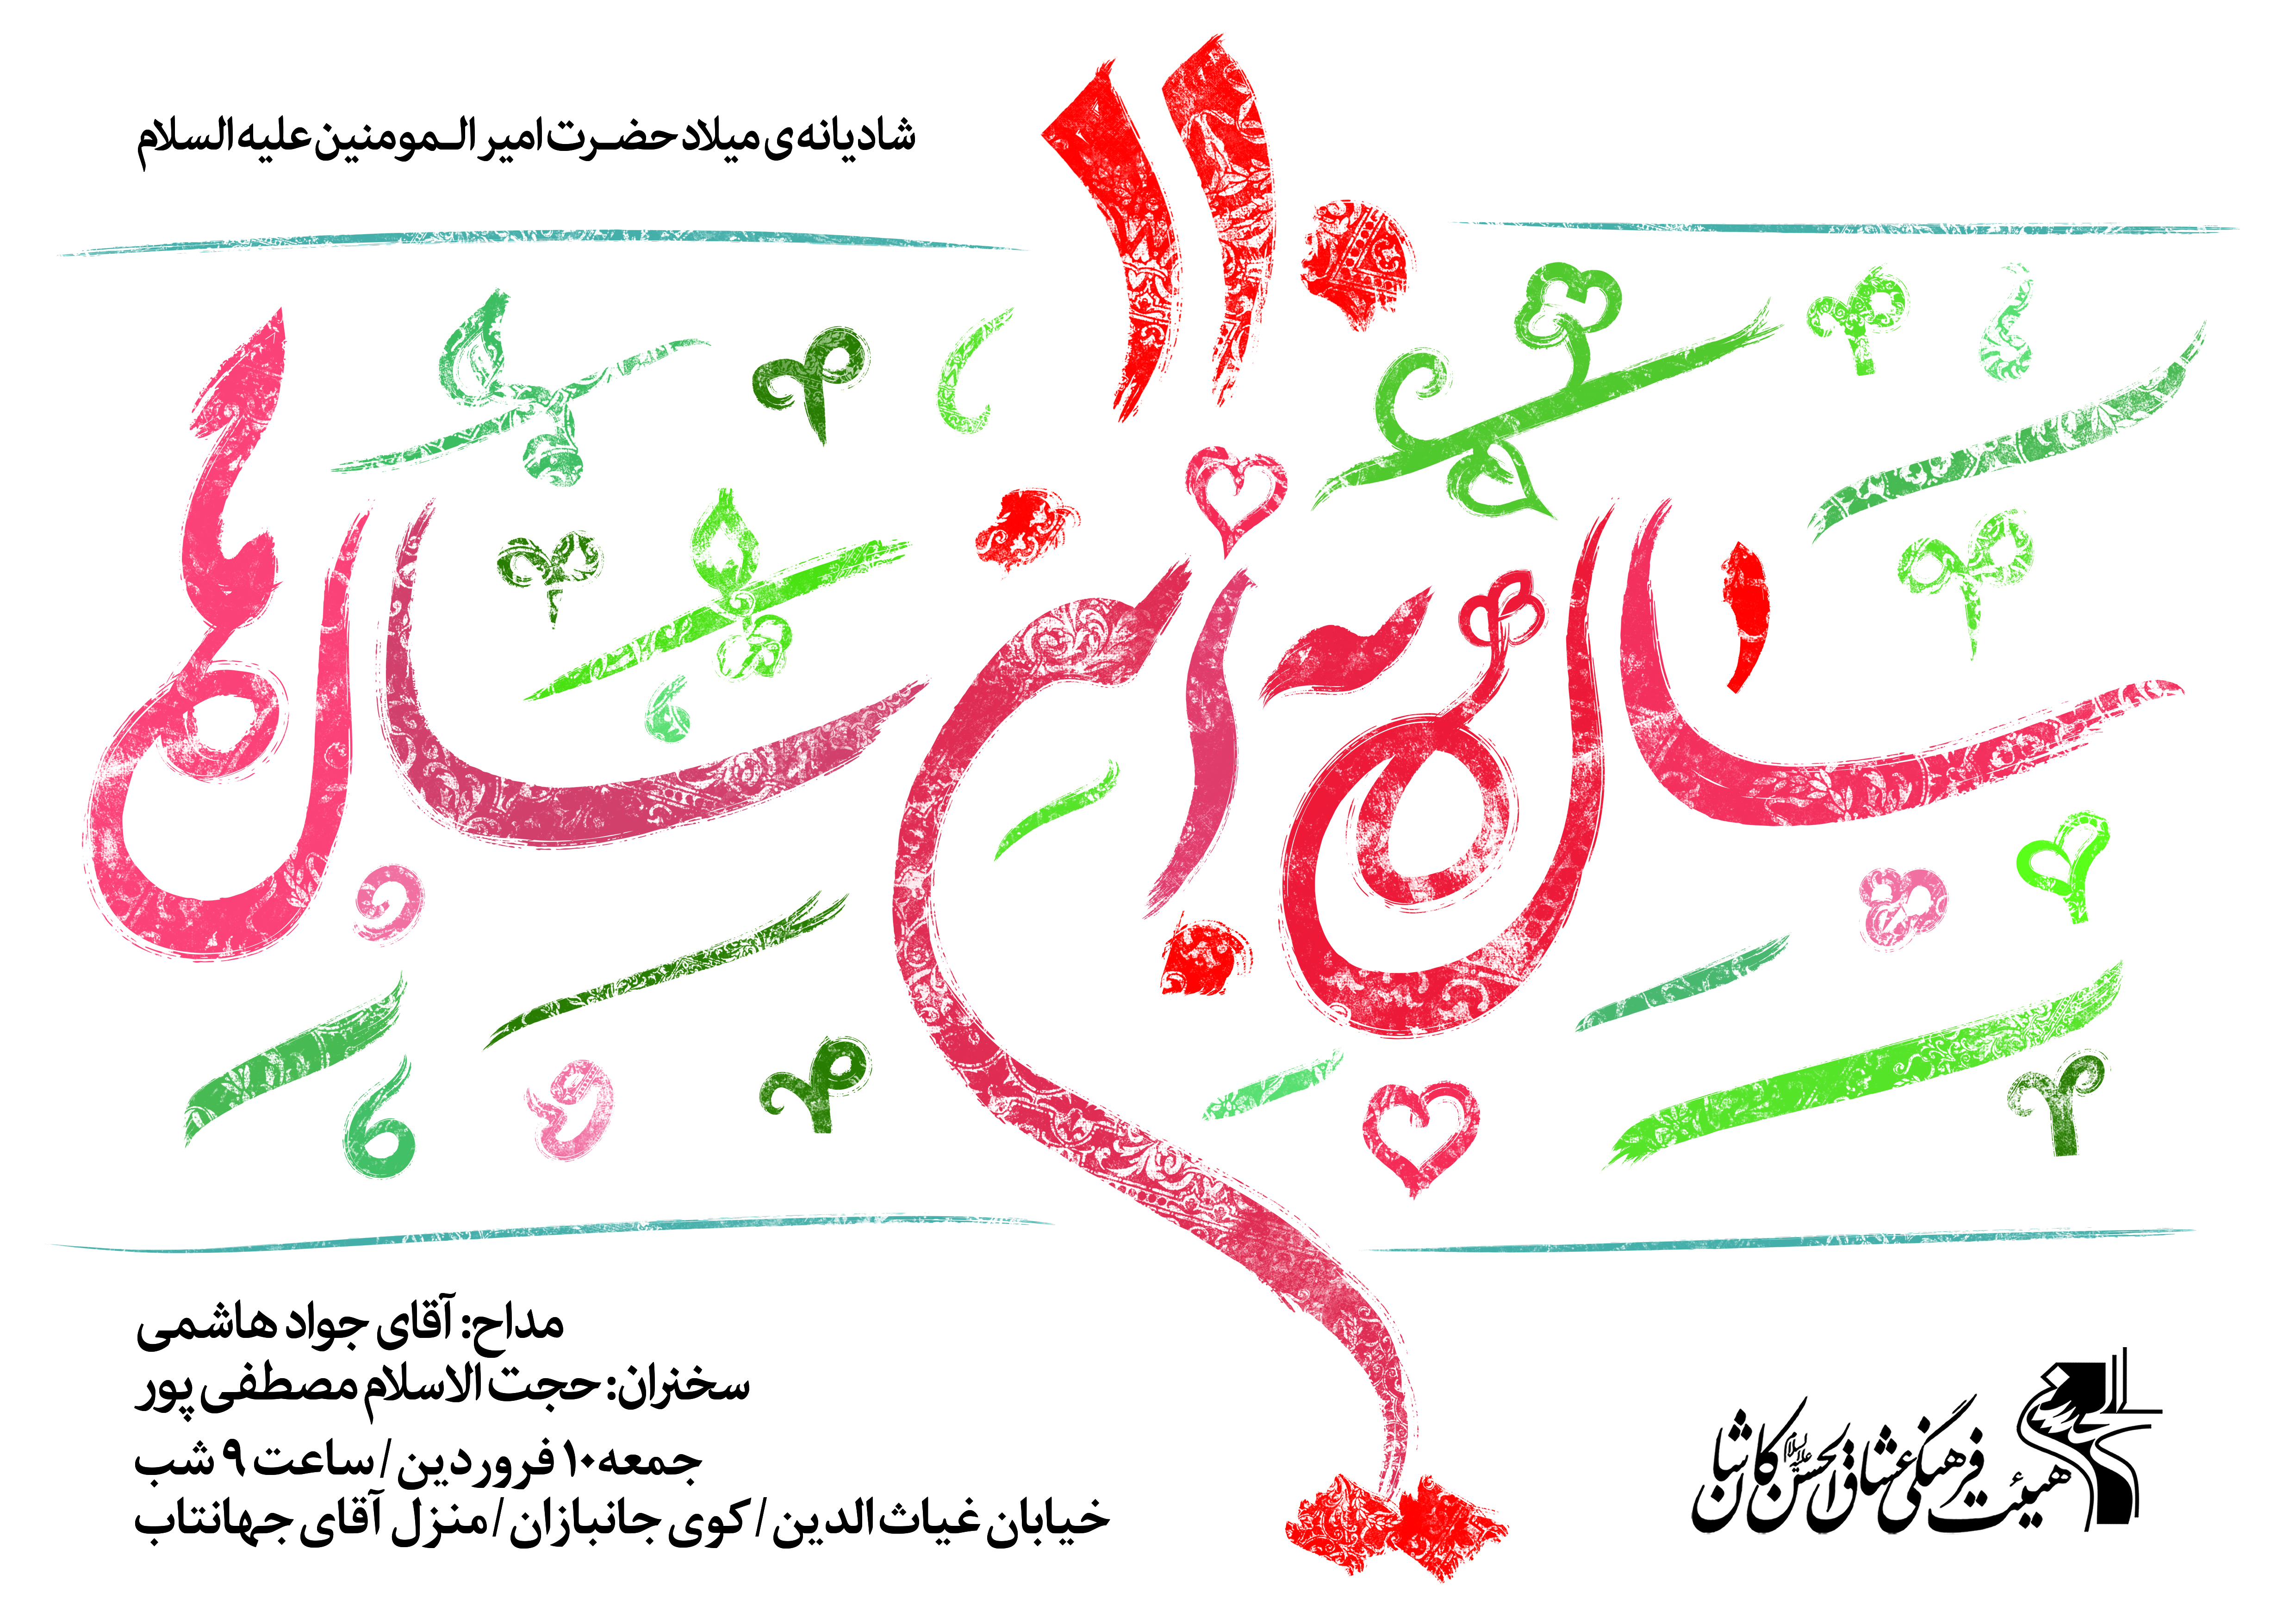 شادیانه‌ی میلاد حضرت امیر المومنین علیه السلام
مداح: آقای جواد هاشمی
سخنران: حجت الاسلام مصطفی پور
جمعه ۱۰ فروردین / ساعت ۹ شب
خیابان غیاث الدین / کوی جانبازان / منزل آقای جهانتاب
هیئت فرهنگی عشاق الحسن علیه السلام کاشان